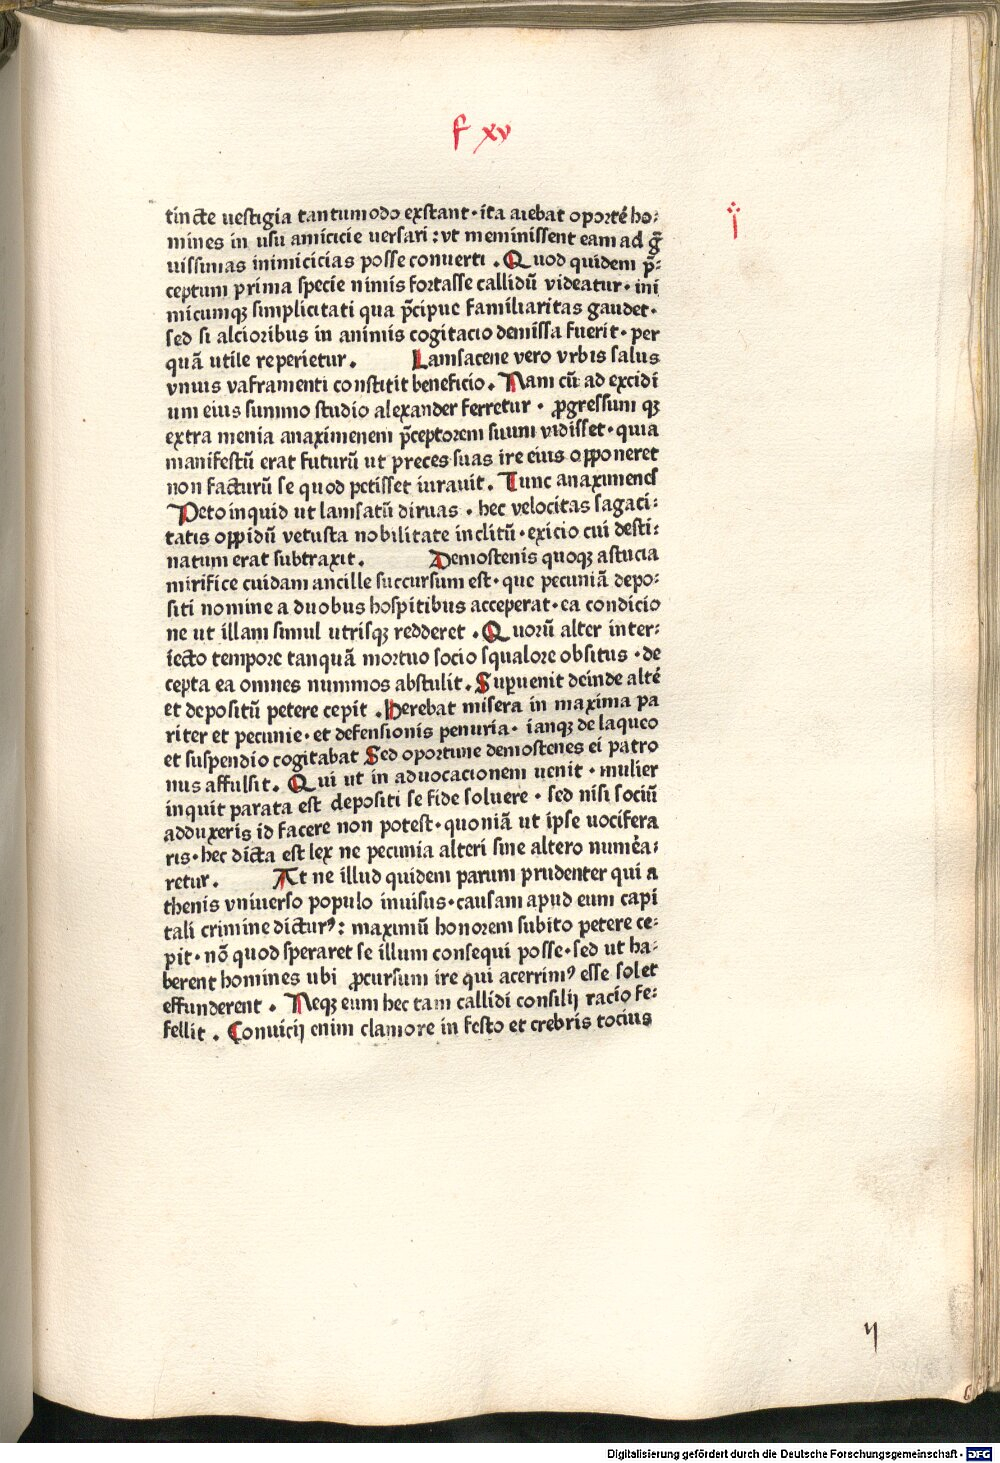 f xv
i
tincte uestigia tantumodo exstant · ita aiebat oporté ho⸗
mines in usu amicicie uersari : vt meminissent eam ad g̃
uissimas inimicicias posse conuerti . Quod quidem p̃⸗
ceptum prima specie nimis fortasse callidū videatur · ini
micumqꝫ simplicitati qua p̃cipue familiaritas gaudet ·
sed si alcioribus in animis cogitacio demissa fuerit · per
quā utile reperietur . Lamsacene vero vrbis salus
vnius vaframenti constitit beneficio . Nam cū ad excidi
um eius summo studio alexander ferretur · ꝓgressum qꝫ
extra menia anaximenem p̃ceptorem suum vidisset · quia
manifestū erat futurū ut preces suas ire eius opponeret
non facturū se quod petisset iurauit . Tunc anaximenes
Peto inquid ut lamsatū diruas . hec velocitas sagaci⸗
tatis oppidū vetusta nobilitate inclitū · exicio cui desti⸗
natum erat subtraxit . Demostenis quoqꝫ astucia
mirifice cuidam ancille succursum est · que pecuniā depo⸗
siti nomine a duobus hospitibus acceperat · ea condicio
ne ut illam simul utrisqꝫ redderet . Quorū alter inter⸗
iecto tempore tanquā mortuo socio squalore obsitus · de
cepta ea omnes nummos abstulit . Supuenit deinde alté
et depositū petere cepit . Herebat misera in maxima pa
riter et pecunie · et defensionis penuria · ianqꝫ de laqueo
et suspendio cogitabat Sed oportune demostenes ei patro
nus affulsit . Qui ut in aduocacionem uenit · mulier
inquit parata est depositi se fide soluere · sed nisi sociū
adduxeris id facere non potest · quoniā ut ipse uocifera
ris · hec dicta est lex ne pecunia alteri sine altero numéa⸗
retur . At ne illud quidem parum prudenter qui a
thenis vniuerso populo inuisus · causam apud eum capi
tali crimine dicturꝰ : maximū honorem subito petere ce⸗
pit · nō quod speraret se illum consequi posse · sed ut ha⸗
berent homines ubi ꝓcursum ire qui acerrimꝰ esse solet
effunderent . Neqꝫ eum hec tam callidi consilij racio fe⸗
fellit . Conuicij enim clamore in festo et crebris tocius
Digitalisierung gefördert durch die Deutsche Forschungsgemeinschaft - DFG